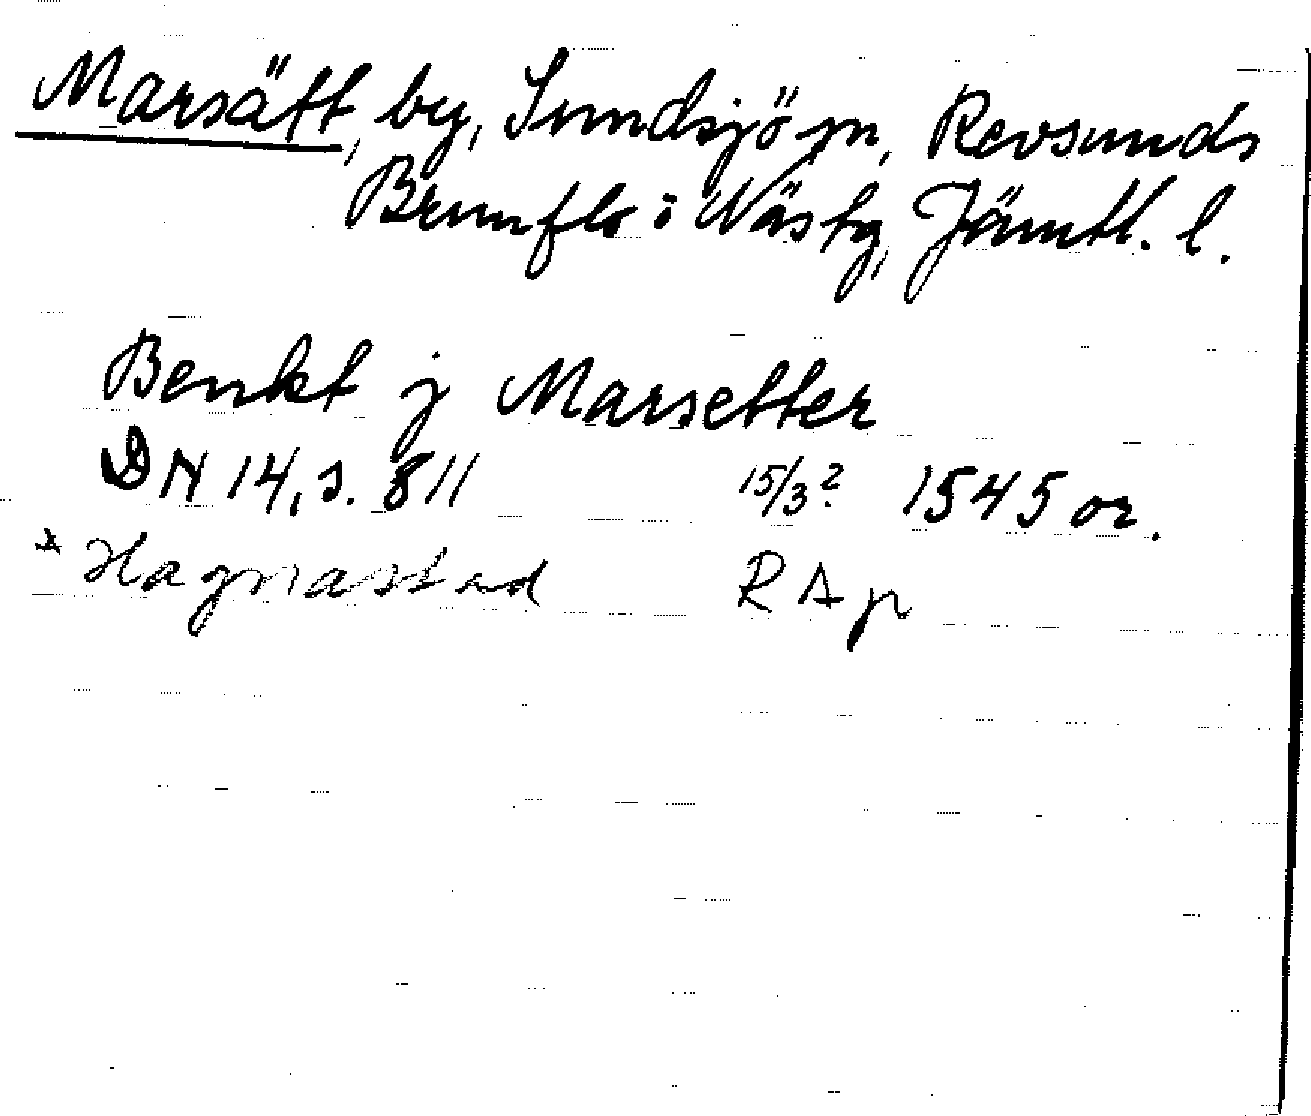 Marsätt, by, Sundsjö sn, Revsunds
Brunflo i Västg, Jämtl. l.
Benkt j Marsetter
DN 14, s. 811 15/3? 1545 or.
* Hagnastad RAp